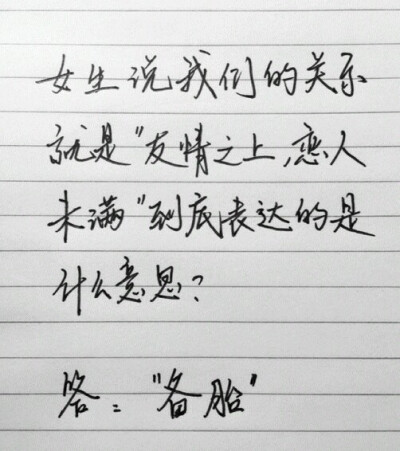 女生说我们的关系
就是"友情之上,恋人
未满"到底表达的是
什么意思?
答:"备胎"